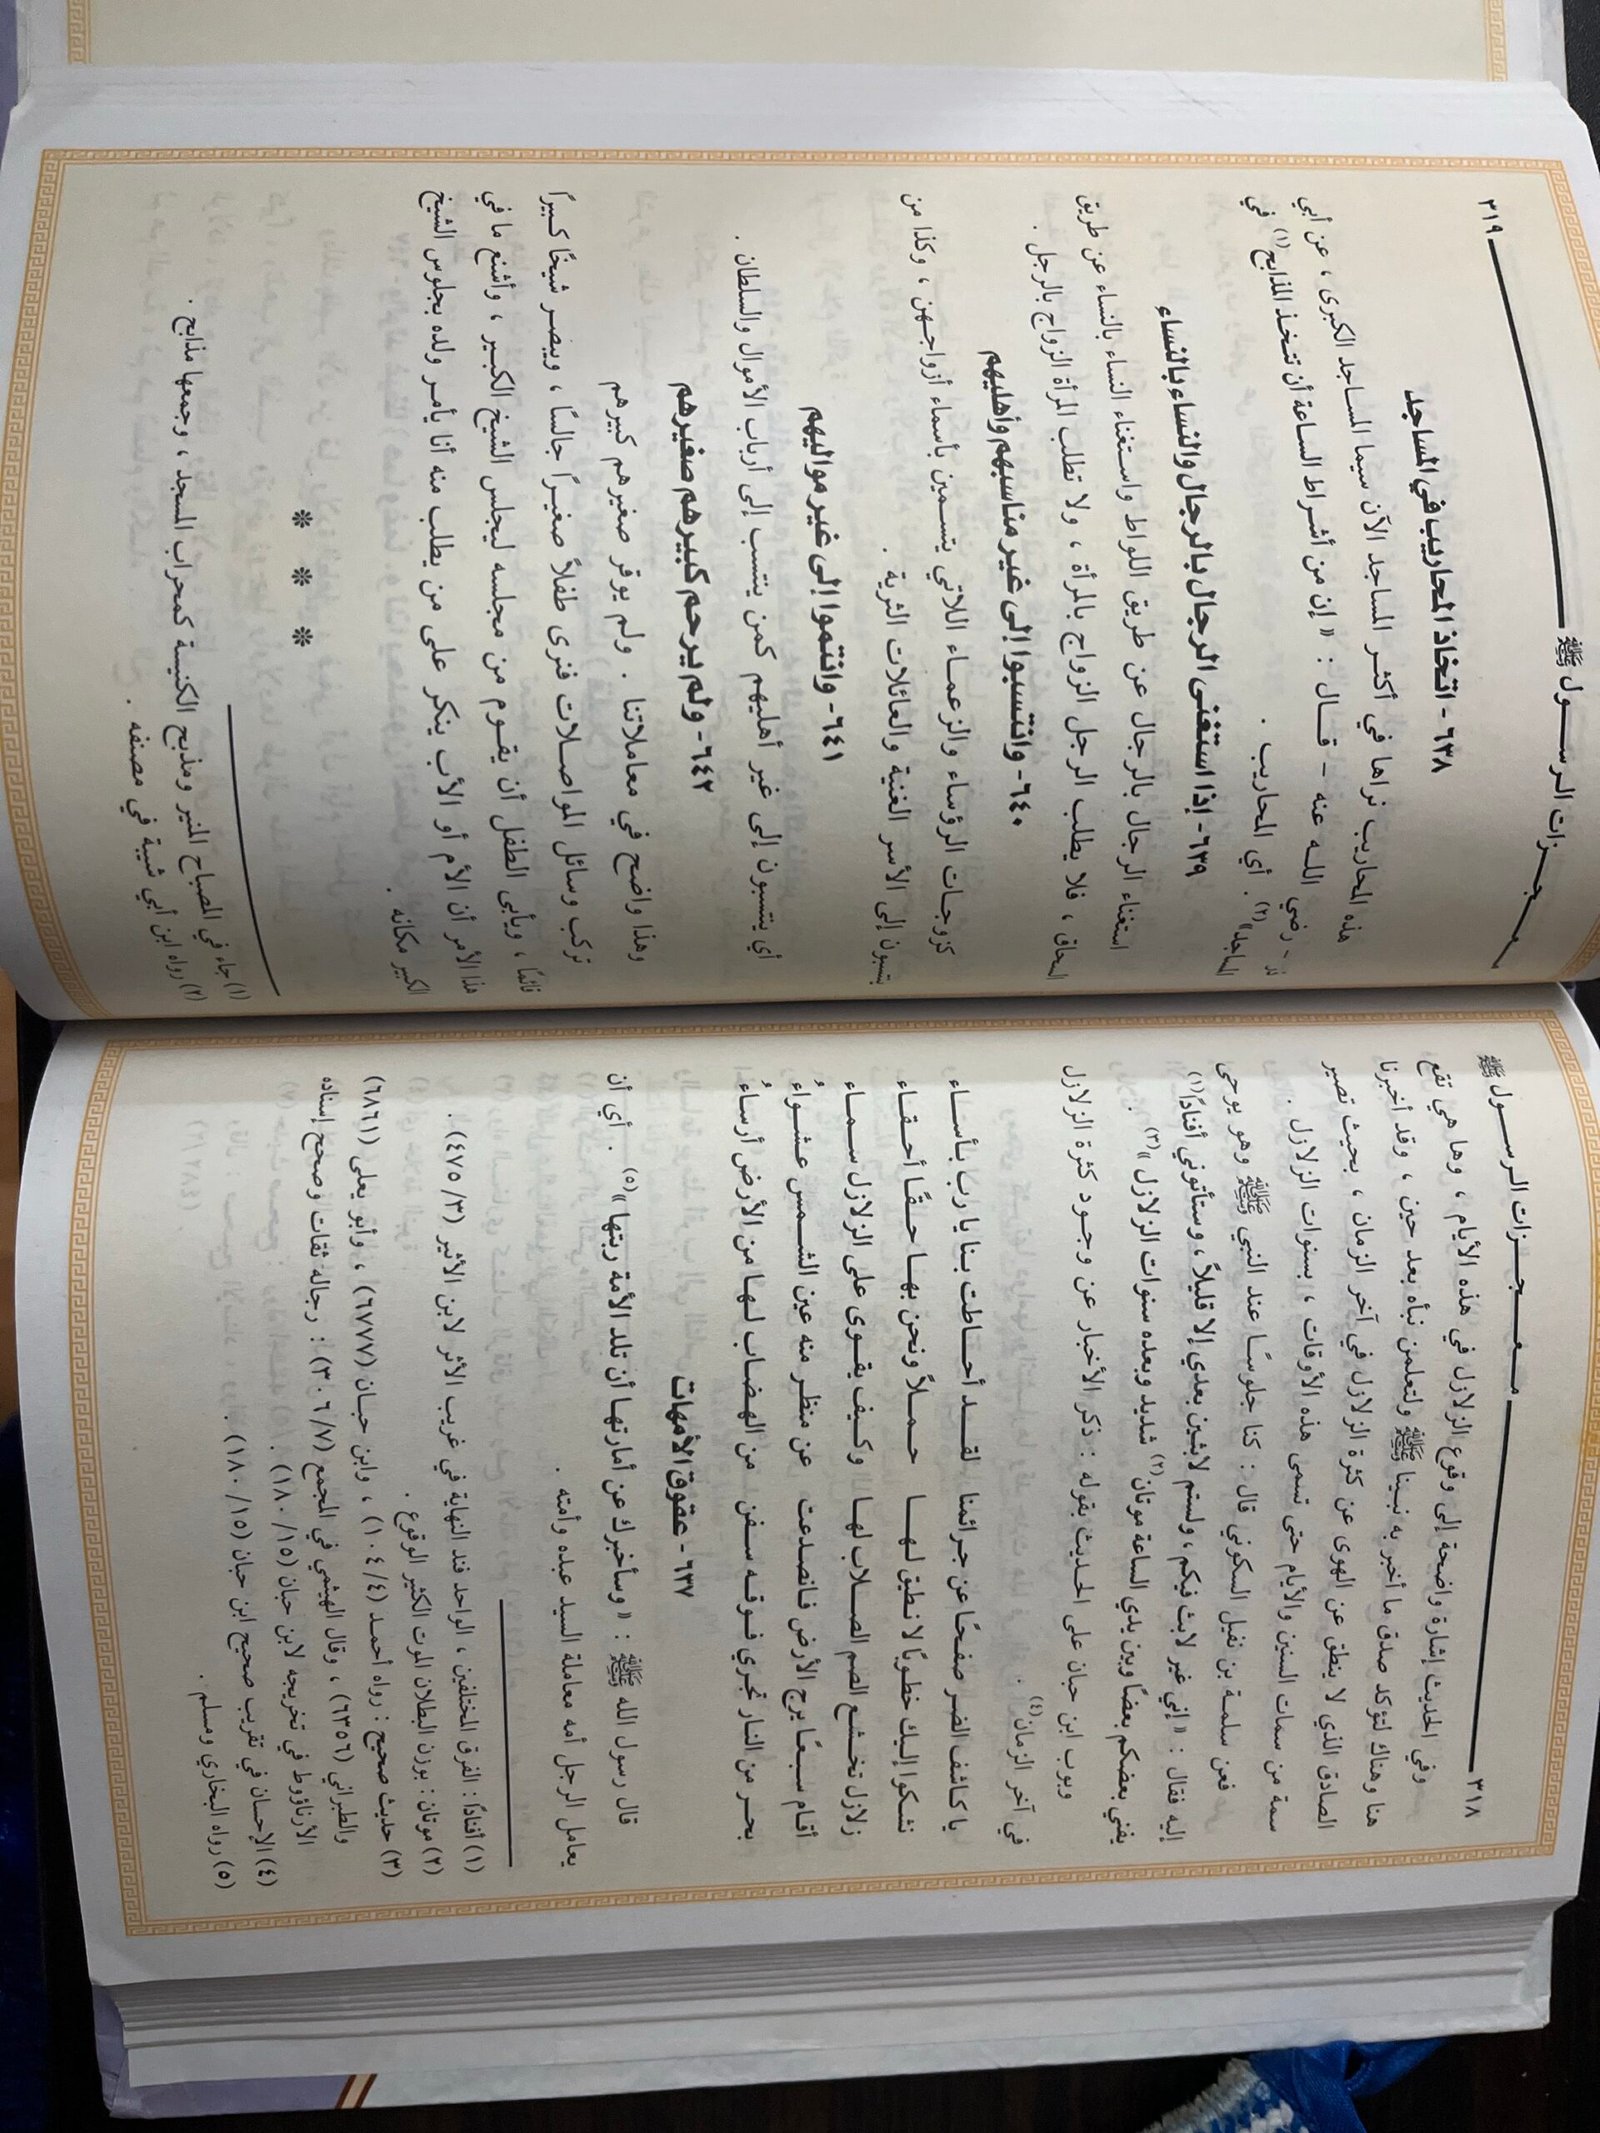 ٣١٨
معجزات الرسول ﷺ
وفي الحديث إشارة واضحة إلى وقوع الزلازل في هذه الأيام ، وها هي تقع
هنا وهناك لتؤكد صدق ما أخبر به نبينا ﷺ ولتعلمن نبأه بعد حين ، وقد أخبرنا
الصادق الذي لا ينطق عن الهوى عن كثرة الزلازل في آخر الزمان ، بحيث تصير
سمة من سمات السنين والأيام حتى تسمى هذه الأوقات ، بسنوات الزلازل .
فعن سلمة بن نفيل السكوني قال : كنا جلوسًا عند النبي ﷺ وهو يوحى
إليه فقال : « إني غير لابث فيكم ، ولستم لابثين بعدي إلا قليلاً ، وستأتوني أفنادًا (١)
يفني بعضكم بعضًا وبين يدي الساعة موتان (٢) شديد وبعده سنوات الزلازل » (٣) .
وبوب ابن حبان على الحديث بقوله : ذكر الأخبار عن وجود كثرة الزلازل
في آخر الزمان (٤) .
يا كاشف الضر صفحًا عن جرائمنا لقد أحاطت بنا يا رب بأساء
نشكوا إليك خطوبًا لا نطيق لها حملاً ونحن بها حقًا أحقاء
زلازل تخشع الصم الصلاب لها وكيف يقوى على الزلازل سماء
أقام سبعًا يرج الأرض فانصدعت عن منظر منه عين الشمس عشواءُ
بحر من النار تجري فوقه سفن من الهضاب لها من الأرض أرساءُ
٦٣٧- عقوق الأمهات
قال رسول الله ﷺ : « وسأخبرك عن أمارتها أن تلد الأمة ربتها » (٥) . أي أن
يعامل الرجل أمه معاملة السيد عبده وأمته .
(١) أفنادًا : الفرق المختلفين ، الواحد فند النهاية في غريب الأثر لابن الأثير (٣/ ٤٧٥) .
(٢) موتان : بوزن البطلان الموت الكثير الوقوع .
(٣) حديث صحيح : رواه أحمد (٤/ ١٠٤) ، وابن حبان (٦٧٧٧) ، وأبو يعلى (٦٨٦١)
والطبراني (٦٣٥٦) ، وقال الهيثمي في المجمع (٧/ ٣٠٦) : رجاله ثقات وصحح إسناده
الأرناؤوط في تخريجه لابن حبان (١٥/ ١٨٠) .
(٤) الإحسان في تقريب صحيح ابن حبان (١٥/ ١٨٠) .
(٥) رواه البخاري ومسلم .
معجزات الرسول ﷺ
٣١٩
٦٣٨- اتخاذ المحاريب في المساجد
هذه المحاريب نراها في أكثر المساجد الآن سيما المساجد الكبرى ، عن أبي
ذر - رضي الله عنه - قال : « إن من أشراط الساعة أن تتخذ المذابح (١) في
المساجد » (٢) . أي المحاريب .
٦٣٩- إذا استغنى الرجال بالرجال والنساء بالنساء
استغناء الرجال بالرجال عن طريق اللواط واستغناء النساء بالنساء عن طريق
السحاق ، فلا يطلب الرجل الزواج بالمرأة ، ولا تطلب المرأة الزواج بالرجل .
٦٤٠- وانتسبوا إلى غير مناسبهم وأهليهم
كزوجات الرؤساء والزعماء اللاتي يتسمين بأسماء أزواجهن ، وكذا من
ينتسبون إلى الأسر الغنية والعائلات الثرية .
٦٤١- وانتموا إلى غير مواليهم
أي ينتسبون إلى غير أهليهم كمن ينتسب إلى أرباب الأموال والسلطان .
٦٤٢- ولم يرحم كبيرهم صغيرهم
وهذا واضح في معاملاتنا . ولم يوقر صغيرهم كبيرهم
تركب وسائل المواصلات فترى طفلاً صغيرًا جالسًا ، ويبصر شيخًا كبيرًا
قائمًا ، ويأبى الطفل أن يقوم من مجلسه ليجلس الشيخ الكبير ، وأشنع ما في
هذا الأمر أن الأم أو الأب ينكر على من يطلب منه أنا يأمر ولده بجلوس الشيخ
الكبير مكانه .
* * *
(١) جاء في المصباح المنير ومذبح الكنيسة كمحراب المسجد ، وجمعها مذابح .
(٢) رواه ابن أبي شيبة في مصنفه .